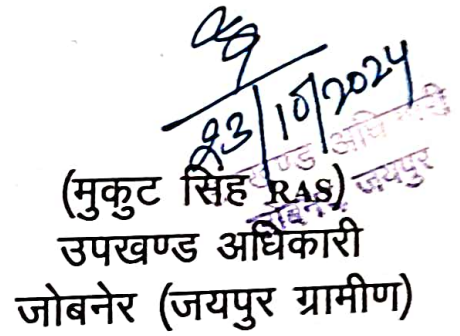 23/10/2024
उपखण्ड अधिकारी
जोबनेर जयपुर
(मुकुट सिंह RAS)
उपखण्ड अधिकारी
जोबनेर (जयपुर ग्रामीण)